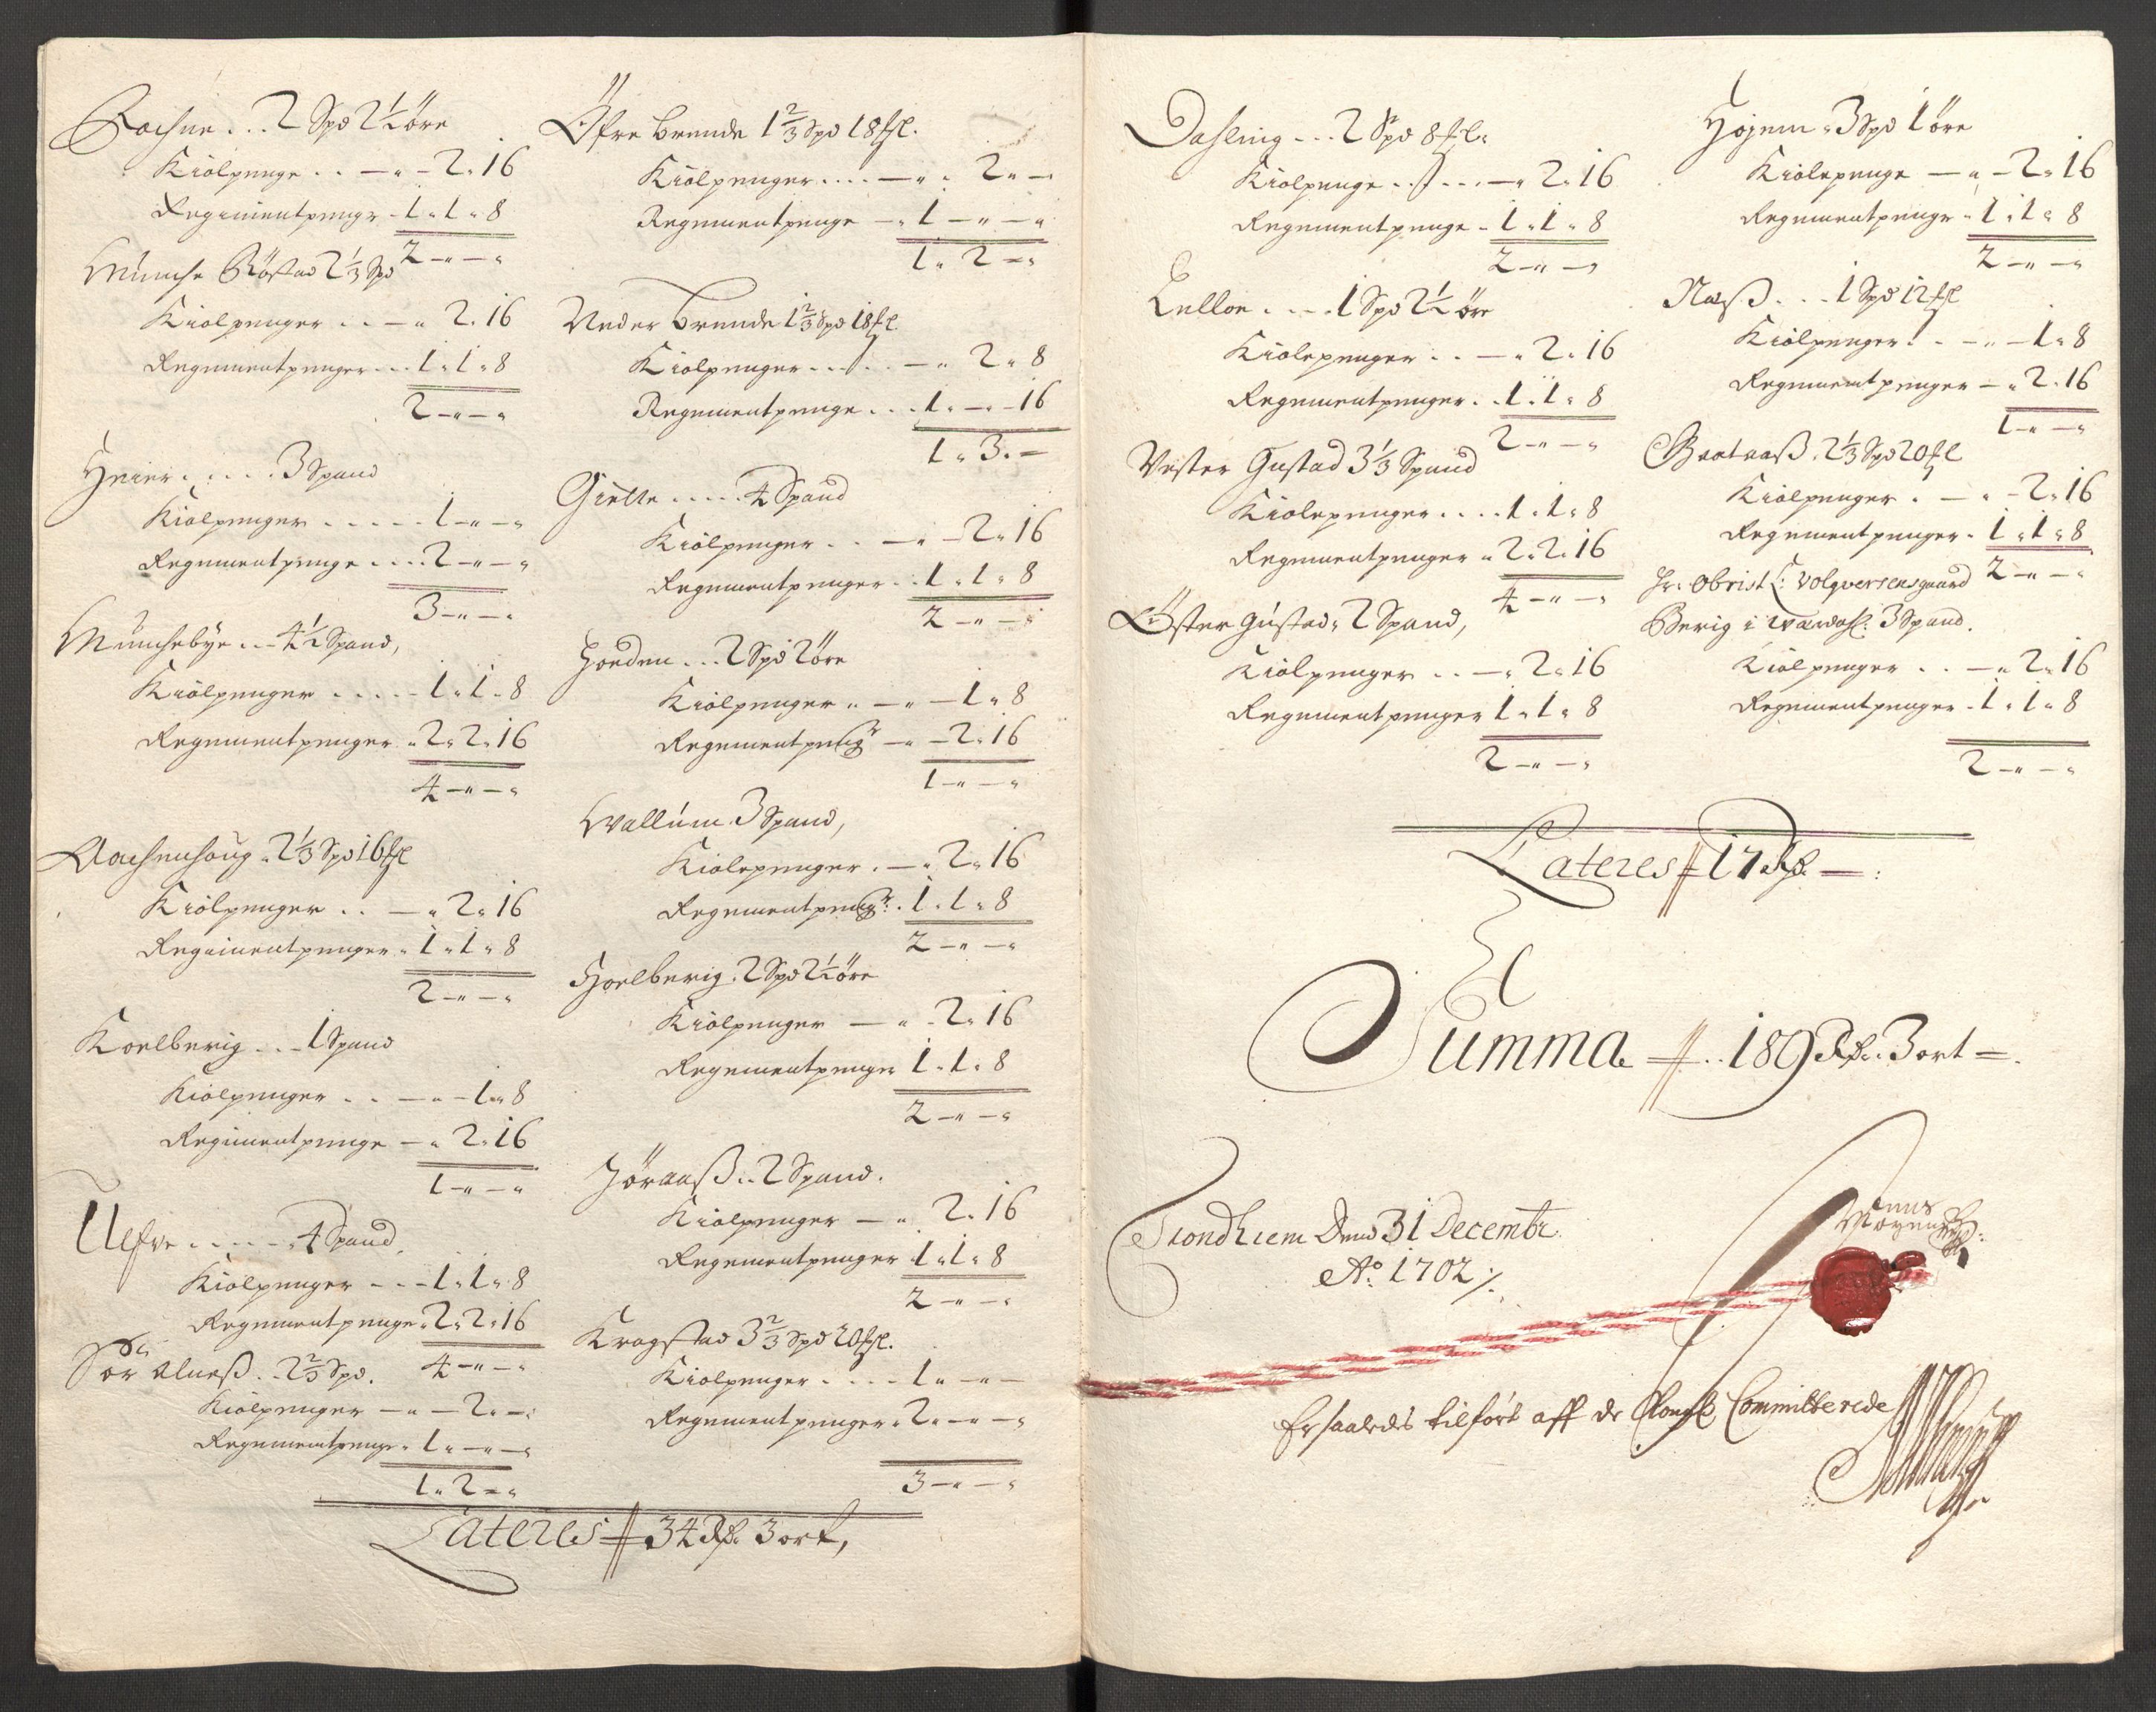 Aachne . . . 2 Spd 2½ öre
Kiölpenge . . — „ – 2 „ 16
Regimentpenge – 1 „ 1 „ 8
2 – „ – „
Munche Röstad 2⅓ Spd
Kiölpenger . . – „ 2 . 16
Regimentpenger . . 1 „ 1 „ 8
2 – „ – „
Heier . . . . . 3 Spand
Kiölpenger . . . . . 1 – „ – „
Regimentpenge . . . . 2 – „ – „
3 – „ – „
Munchebye . . – 4½ Spand,
Kiölpenger . . . . – 1 „ 1 „ 8
Regimentpenger „ 2 „ 2 „ 16
4 – „ – „
Aachenhoug „ 2⅓ Spd 16 ſſl
Kiölpenger . . – „ 2 „ 16
Regimentpenger „ 1 „ 1 „ 8
2 – „ – „
Koelberig . . – 1 Spand
Kiölpenger . . – „ – 1 „ 8
Regimentpenge – „ 2 „ 16
1 – „ – „
Ulfve . . . . – „ 4 Spand,
Kiölpenger – . – 1 „ 1 „ 8
Regimentpenge „ 2 „ 2 „ 16
4 – „ – „
Sör Alneß . . 2⅔ Spd.
Kiölpenger – „ – 2 „ – „
Regimentpenge „ 1 „ – „ – „
1 „ 2 – „
Öfre brende 1⅔ Spd 18 ſſl.
Kiölpenger . . . . – „ . 2 „ –
Regimentpenge – „ 1 – „ – „
1 „ 2 – „
Neder brende 1⅔ Spd 18 ſſl
Kiölpenger . . . . . – „ 2 „ 8
Regimentpenge . . . 1 „ – „ – 16
1 „ 3 . –
Gielle . . . . . 4 Spand
Kiölpenger . . – „ – 2 „ 16
Regimentpenger . . 1 „ 1 „ 8
2 – „ – „
Horden . . . 2 Spd 2 öre
Kiölpenger „ – „ – 1 „ 8
Regimentpeng^r – „ – 2 „ 16
1 – „ – „
Wallum 3 Spand,
Kiölepenger . – „ 2 „ 16
Regimentpeng^r . 1 „ 1 „ 8
2 – „ – „
Hoelberig . 2 Spd 2½ öre
Kiölpenger – „ – 2 „ 16
Regimentpenger 1 „ 1 „ 8
2 – „ – „
Jöraaß . . 2 Spand .
Kiölpenger – „ 2 „ 16
Regimentpenger 1 „ 1 „ 8
2 – „ – „
Kragstad 3⅔ Spd 20 ſſl.
Kiölpenger . . . – 1 „ – „ –
Regimentpenger „ 2 „ – „ – „
3 – „ – „
Lateres 34 Rd. 3 ort,
Dahling . . . 2 Spd 8 ſſl „
Kiölpenge . . . . . – „ 2 „ 16
Regimentpenge – 1 „ 1 „ 8
2 – „ – „
Lelloe . . . . 1 Spd 2½ öre
Kiölepenger . . – „ 2 „ 16
Regimentpenger . . 1 . 1 „ 8
2 – „ – „
Vester Gustad 3⅓ Spand
Kiölepenger . . . . 1 „ 1 „ 8
Regimentpenger „ 2 „ 2 „ 16
4 – „ – „
Öster Gustad „ 2 Spand,
Kiölpenger . . – „ 2 „ 16
Regimentpenger 1 „ 1 „ 8
2 – „ – „
Höjem „ 3 Spd 1 öre
Kiölepenge – „ – 2 „ 16
Regimentpenge „ 1 „ 1 „ 8
2 – „ – „
Næß . . . – 1 Spd 12 ſſl
Kiölpenger . . – „ – 1 „ 8
Regimentpenger – „ 2 . 16
1 – „ – „
Graaneß . 2⅓ Spd 20 ſſl
Kiölpenger . – „ – 2 „ 16
Regimentpenger . 1 „ 1 „ 8
2 – „ – „
Hr. Obrist L: Volqversens gaard
Berig i Værdahl: 3 Spand.
Kiölpenger . . – „ 2 „ 16
Regimentpenger . 1 „ 1 „ 8
2 – „ – „
Lateres 17 Rd. –
Summa – . . 189 Rd. 3 ort –
Trondhiem Dend 31 Decembr.
A° 1702 ⁒
Ersaaledes tilfört aff de Kongl Committerede